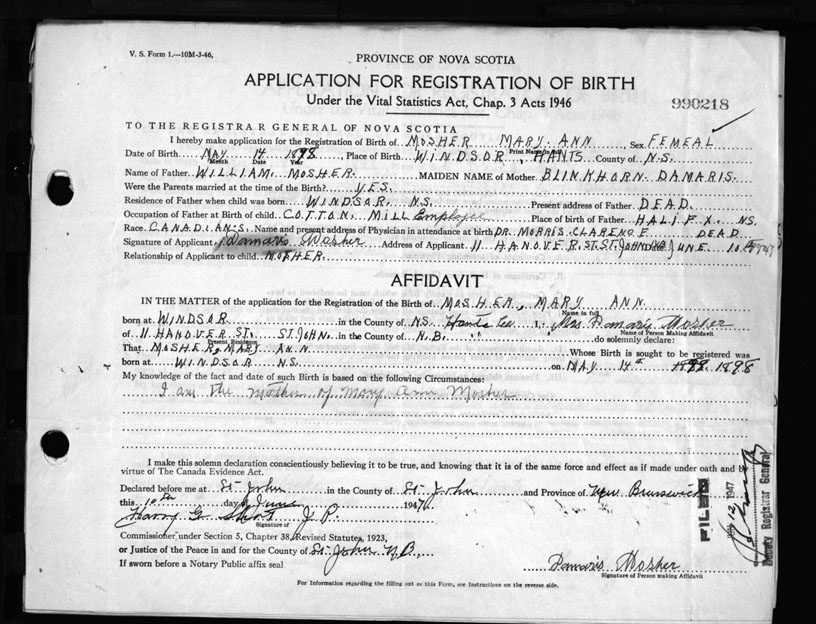 V. S. Form 1.—10M-3-46,
PROVINCE OF NOVA SCOTIA
APPLICATION FOR REGISTRATION OF BIRTH
Under the Vital Statistics Act, Chap. 3 Acts 1946
990218
TO THE REGISTRAR GENERAL OF NOVA SCOTIA
I hereby make application for the Registration of Birth of MOSHER MARY ANN Sex FEMEAL
Print Name in full
Date of Birth MAY 14 1898, Place of Birth WINDSOR, HANTS County of N.S.
Month Date Year
Name of Father WILLIAM MOSHER. MAIDEN NAME of Mother BLINKHORN DAMARIS.
Were the Parents married at the time of the Birth? YES.
Residence of Father when child was born WINDSAR. N.S. Present address of Father DEAD.
Occupation of Father at Birth of child COTTON MILL Employee Place of birth of Father HALIFX. NS.
Race CANADIAN'S Name and present address of Physician in attendance at birth DR MORRIS CLARENCE DEAD
Signature of Applicant Damaris Mosher Address of Applicant 11 HANOVER ST. ST JOHN NB JUNE 10th 1947
Relationship of Applicant to child MOTHER
AFFIDAVIT
IN THE MATTER of the application for the Registration of the Birth of MOSHER, MARY ANN
Name in full
born at WINDSAR in the County of NS Hants Co I, Mrs. Damaris Mosher
Name of Person Making Affidavit
of 11 HANOVER ST. ST JOHN. in the County of N.B. do solemnly declare:
Present Residence
That MOSHER, MARY ANN Whose Birth is sought to be registered was
born at WINDSOR N.S. on MAY 14th 1898
My knowledge of the fact and date of such Birth is based on the following Circumstances:
I am the mother of Mary Ann Mosher
I make this solemn declaration conscientiously believing it to be true, and knowing that it is of the same force and effect as if made under oath and by
virtue of The Canada Evidence Act.
Declared before me at St John in the County of St. John and Province of New Brunswick
this 10th day of June 1947
Harry G J.P.
Signature of
Commissioner under Section 5, Chapter 38, Revised Statutes, 1923,
or Justice of the Peace in and for the County of St. John N.B.,
If sworn before a Notary Public affix seal
Damaris Mosher
Signature of Person making Affidavit
For Information regarding the filling out of this Form, see Instructions on the reverse side.
FILED
12 1947
Deputy Registrar General